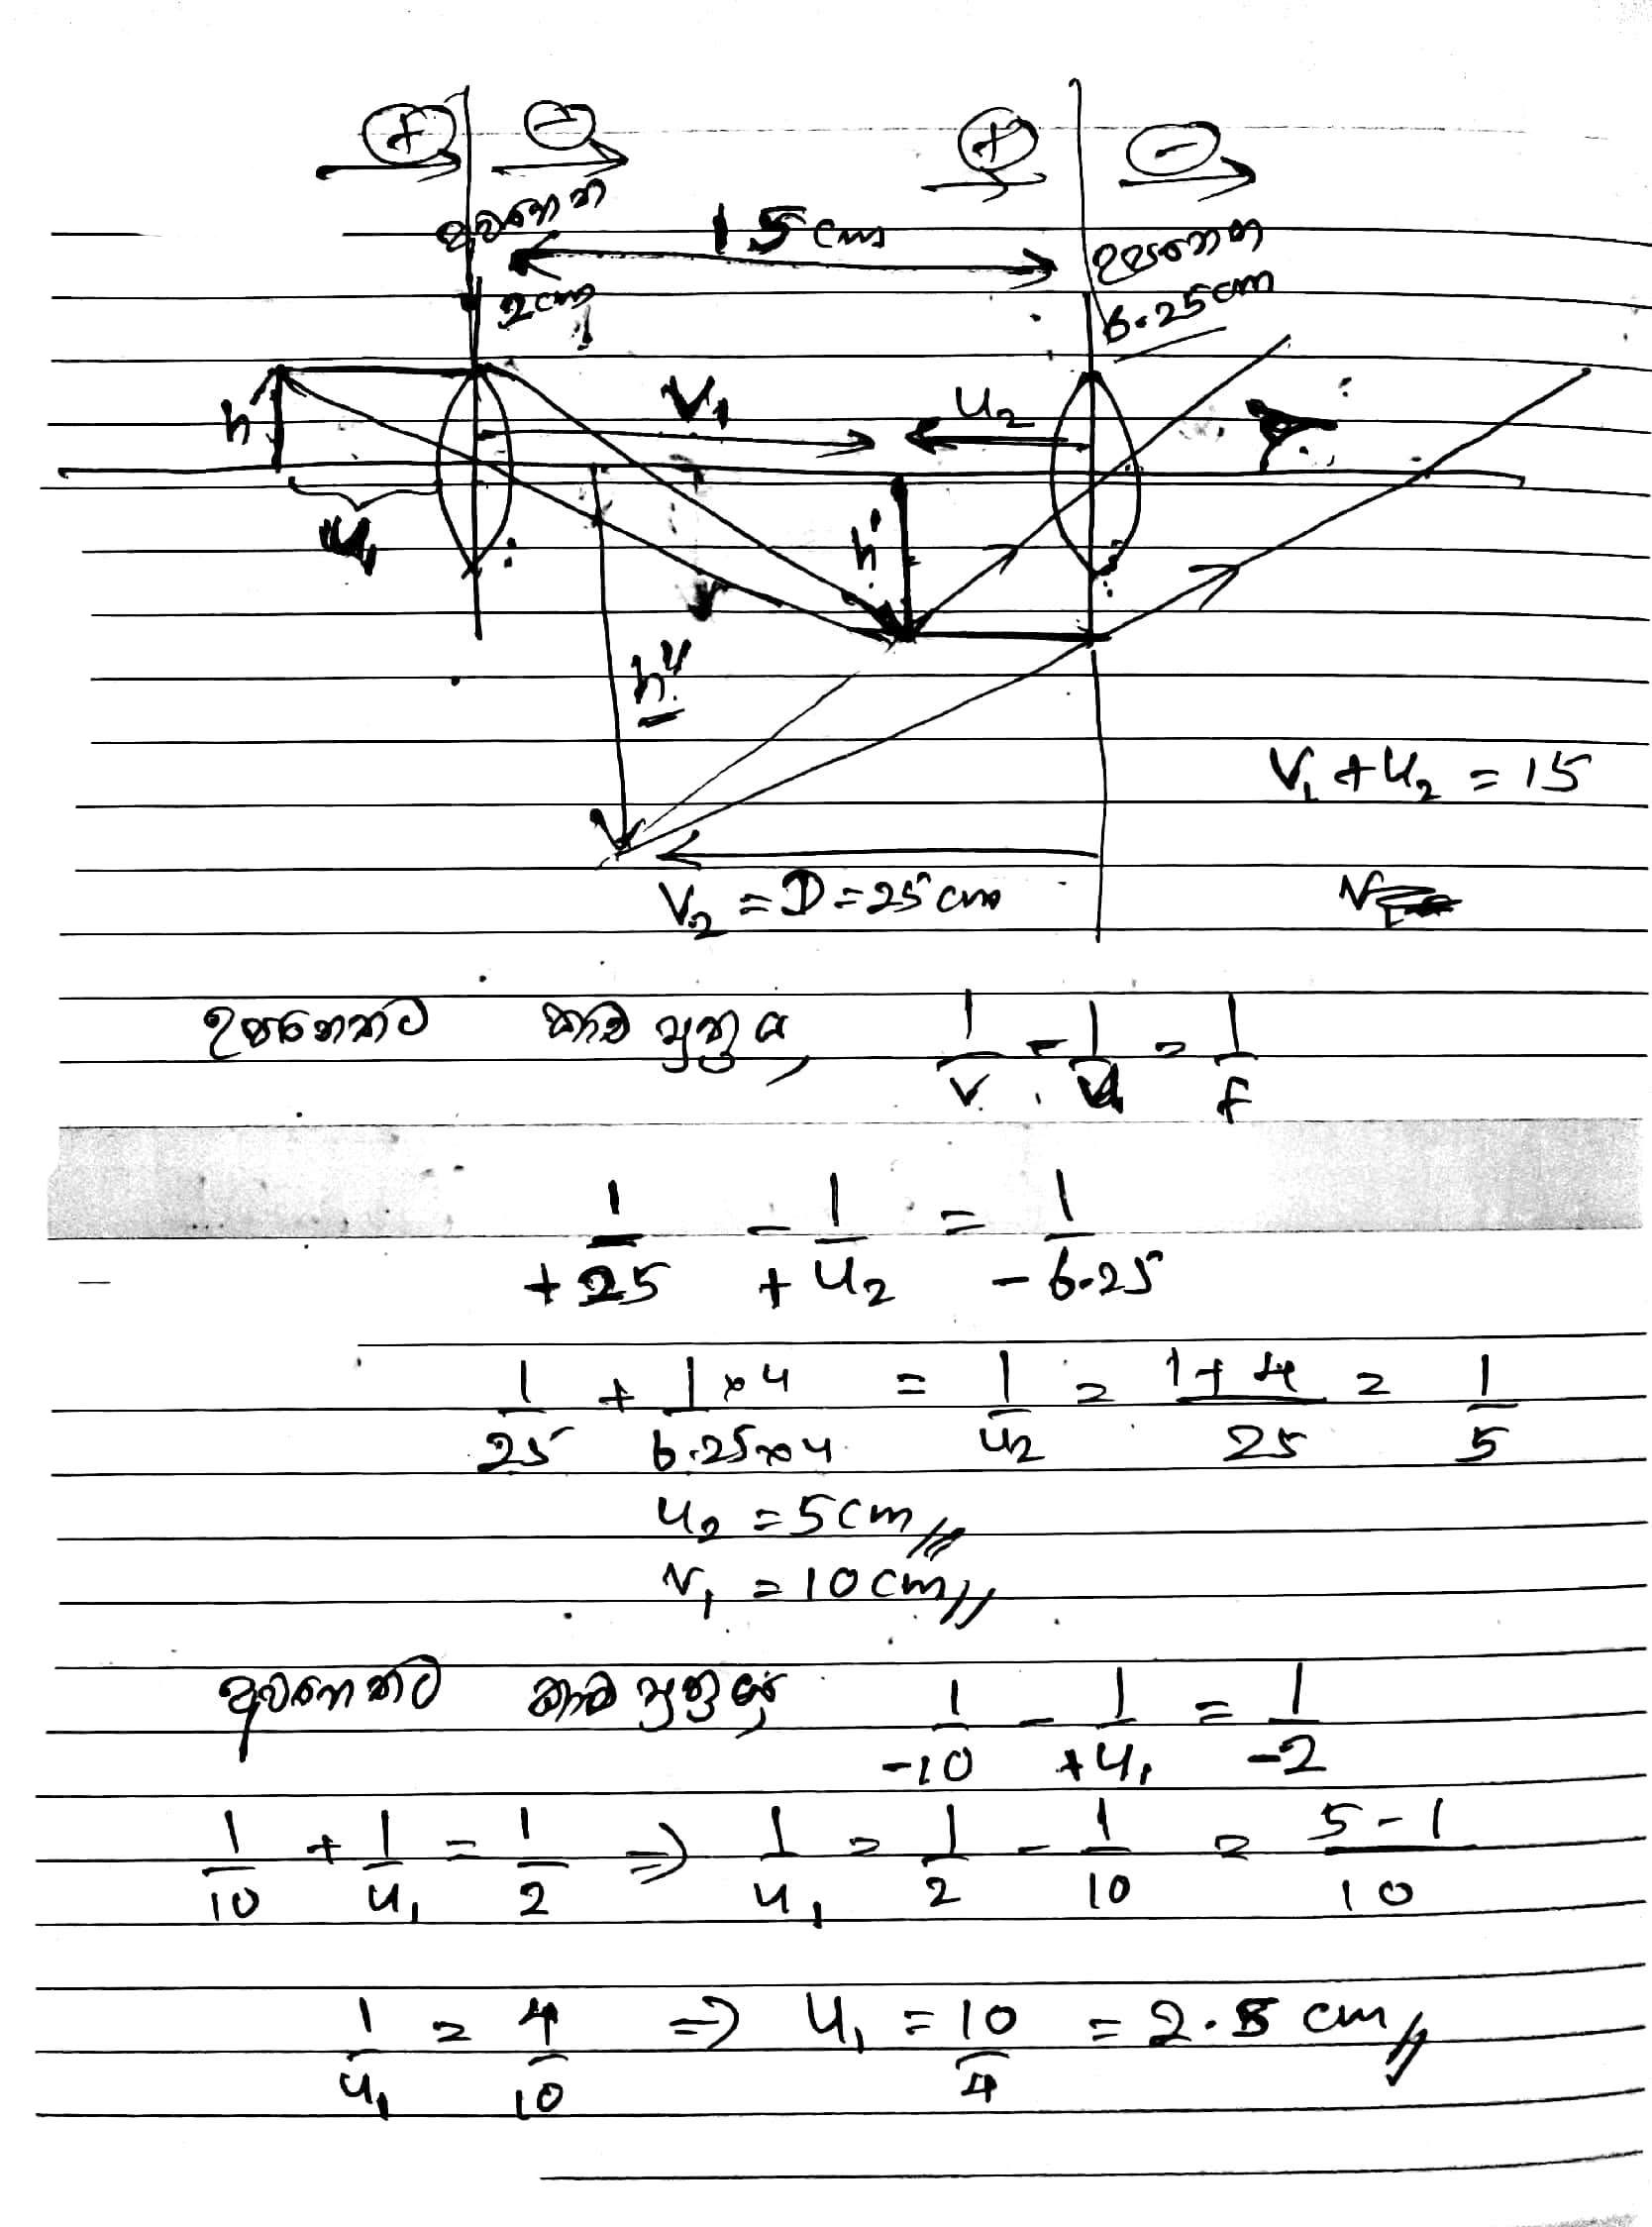 (+) (-) (+) (-)
අවනෙත 15 cm උපනෙත
2cm 6.25cm
h V₁ u₂
u₁ h'
h''
V₁ + u₂ = 15
V₂ = D = 25 cm
උපනෙතට කාච සූත්‍රය, 1/v - 1/u = 1/f
1/+25 - 1/+u₂ = 1/-6.25
1/25 + 1×4/6.25×4 = 1/u₂ = 1+4/25 = 1/5
u₂ = 5cm//
v₁ = 10cm//
අවනෙතට කාච සූත්‍රය, 1/-10 - 1/+u₁ = 1/-2
1/10 + 1/u₁ = 1/2 ⇒ 1/u₁ = 1/2 - 1/10 = 5-1/10
1/u₁ = 4/10 ⇒ u₁ = 10/4 = 2.5 cm//